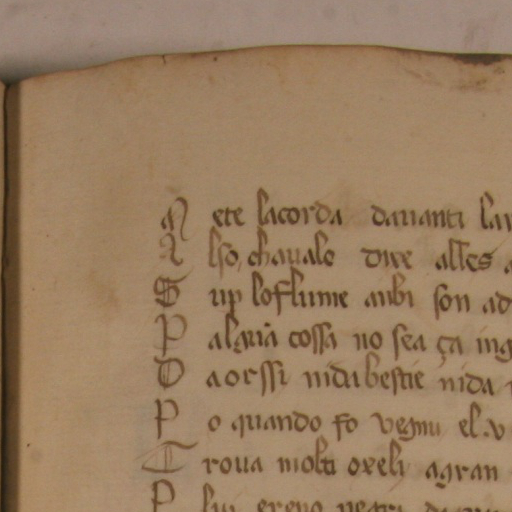 M ete lacorda dauanti lar
A lso chaualo dixe alles a
S up lo flume anbi son ad
P alguã cossa no sea ça ing
D a orssi nida bestie nida
P o quando fo vegnu el v
T roua molti oxely agran
P lui ereno negri